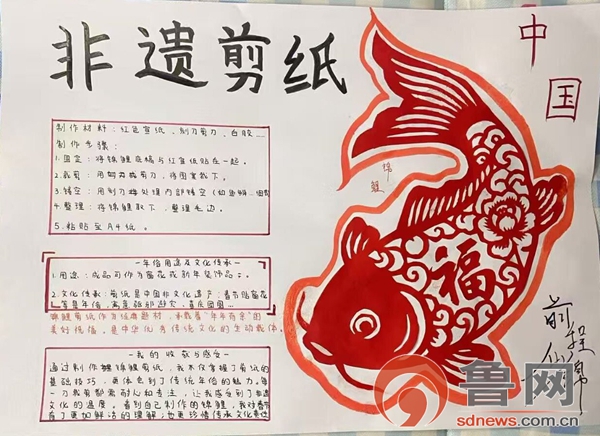 非遗剪纸
中国
制作材料：红色宣纸，刻刀剪刀，白胶
制作步骤：
1.固定：将锦鲤底稿与红宣纸贴在一起。
2.裁剪：用剪刀，将图案裁下。
3.镂空：用刻刀将处理内部镂空
4.整理：将锦鲤取下，整理毛边。
5.粘贴至A4纸。
年俗用途及文化传承
1.用途：成品可作为窗花或新年装饰品
2.文化传承：剪纸是中国非文化遗产，春节贴窗花
锦鲤剪纸作为经典题材，承载着"年年有余"的
美好祝福，是中华优秀传统文化的生动载体。
我的收获与感受
通过制作锦鲤剪纸，我不仅掌握了剪纸的
基础技巧，更体会到了传统年俗的魅力。每
一刀裁剪都需耐心和专注，让我感受到了非遗
文化的温度。看到自己制作的锦鲤，我对春节
有了更加鲜活的理解，也更珍惜传承文化
锦鲤
福
前程似锦
鲁网
sdnews.com.cn